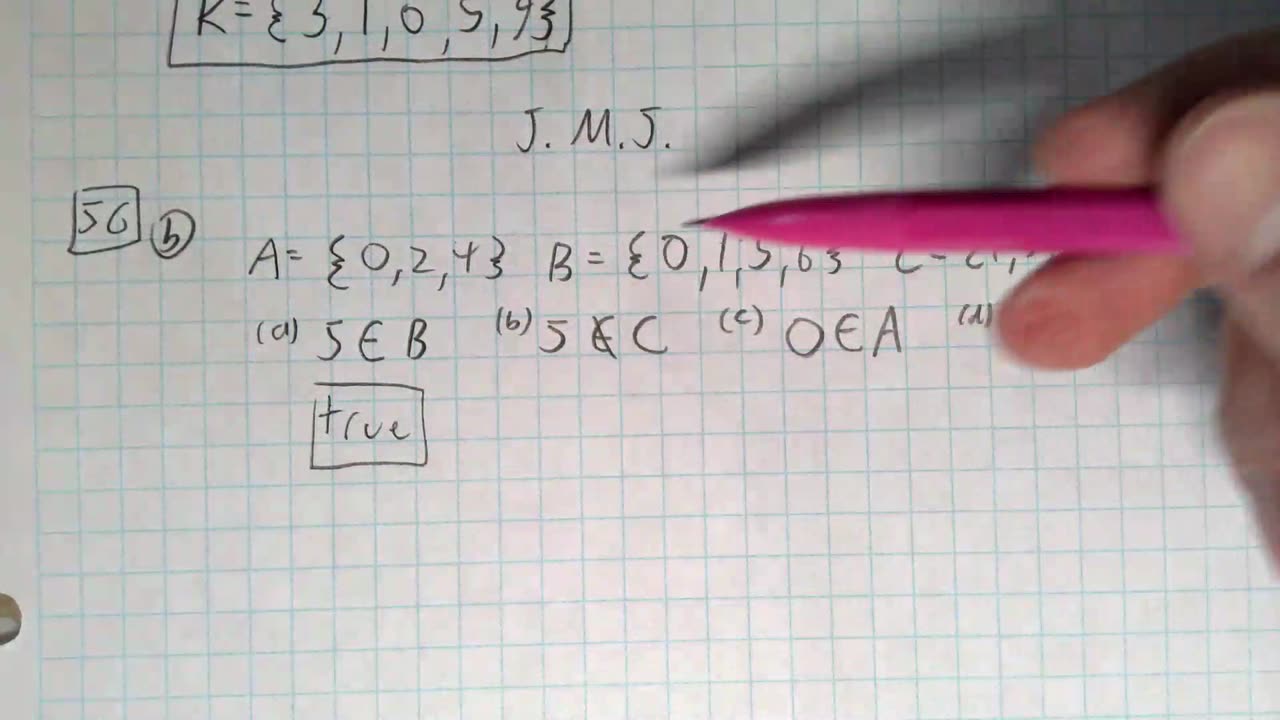 K = {3, 1, 0, 5, 9}
J. M. J.
56 (b) A = {0, 2, 4} B = {0, 1, 5, 6} C =
(a) 5 ∈ B (b) 5 ∉ C (c) 0 ∈ A (d)
true